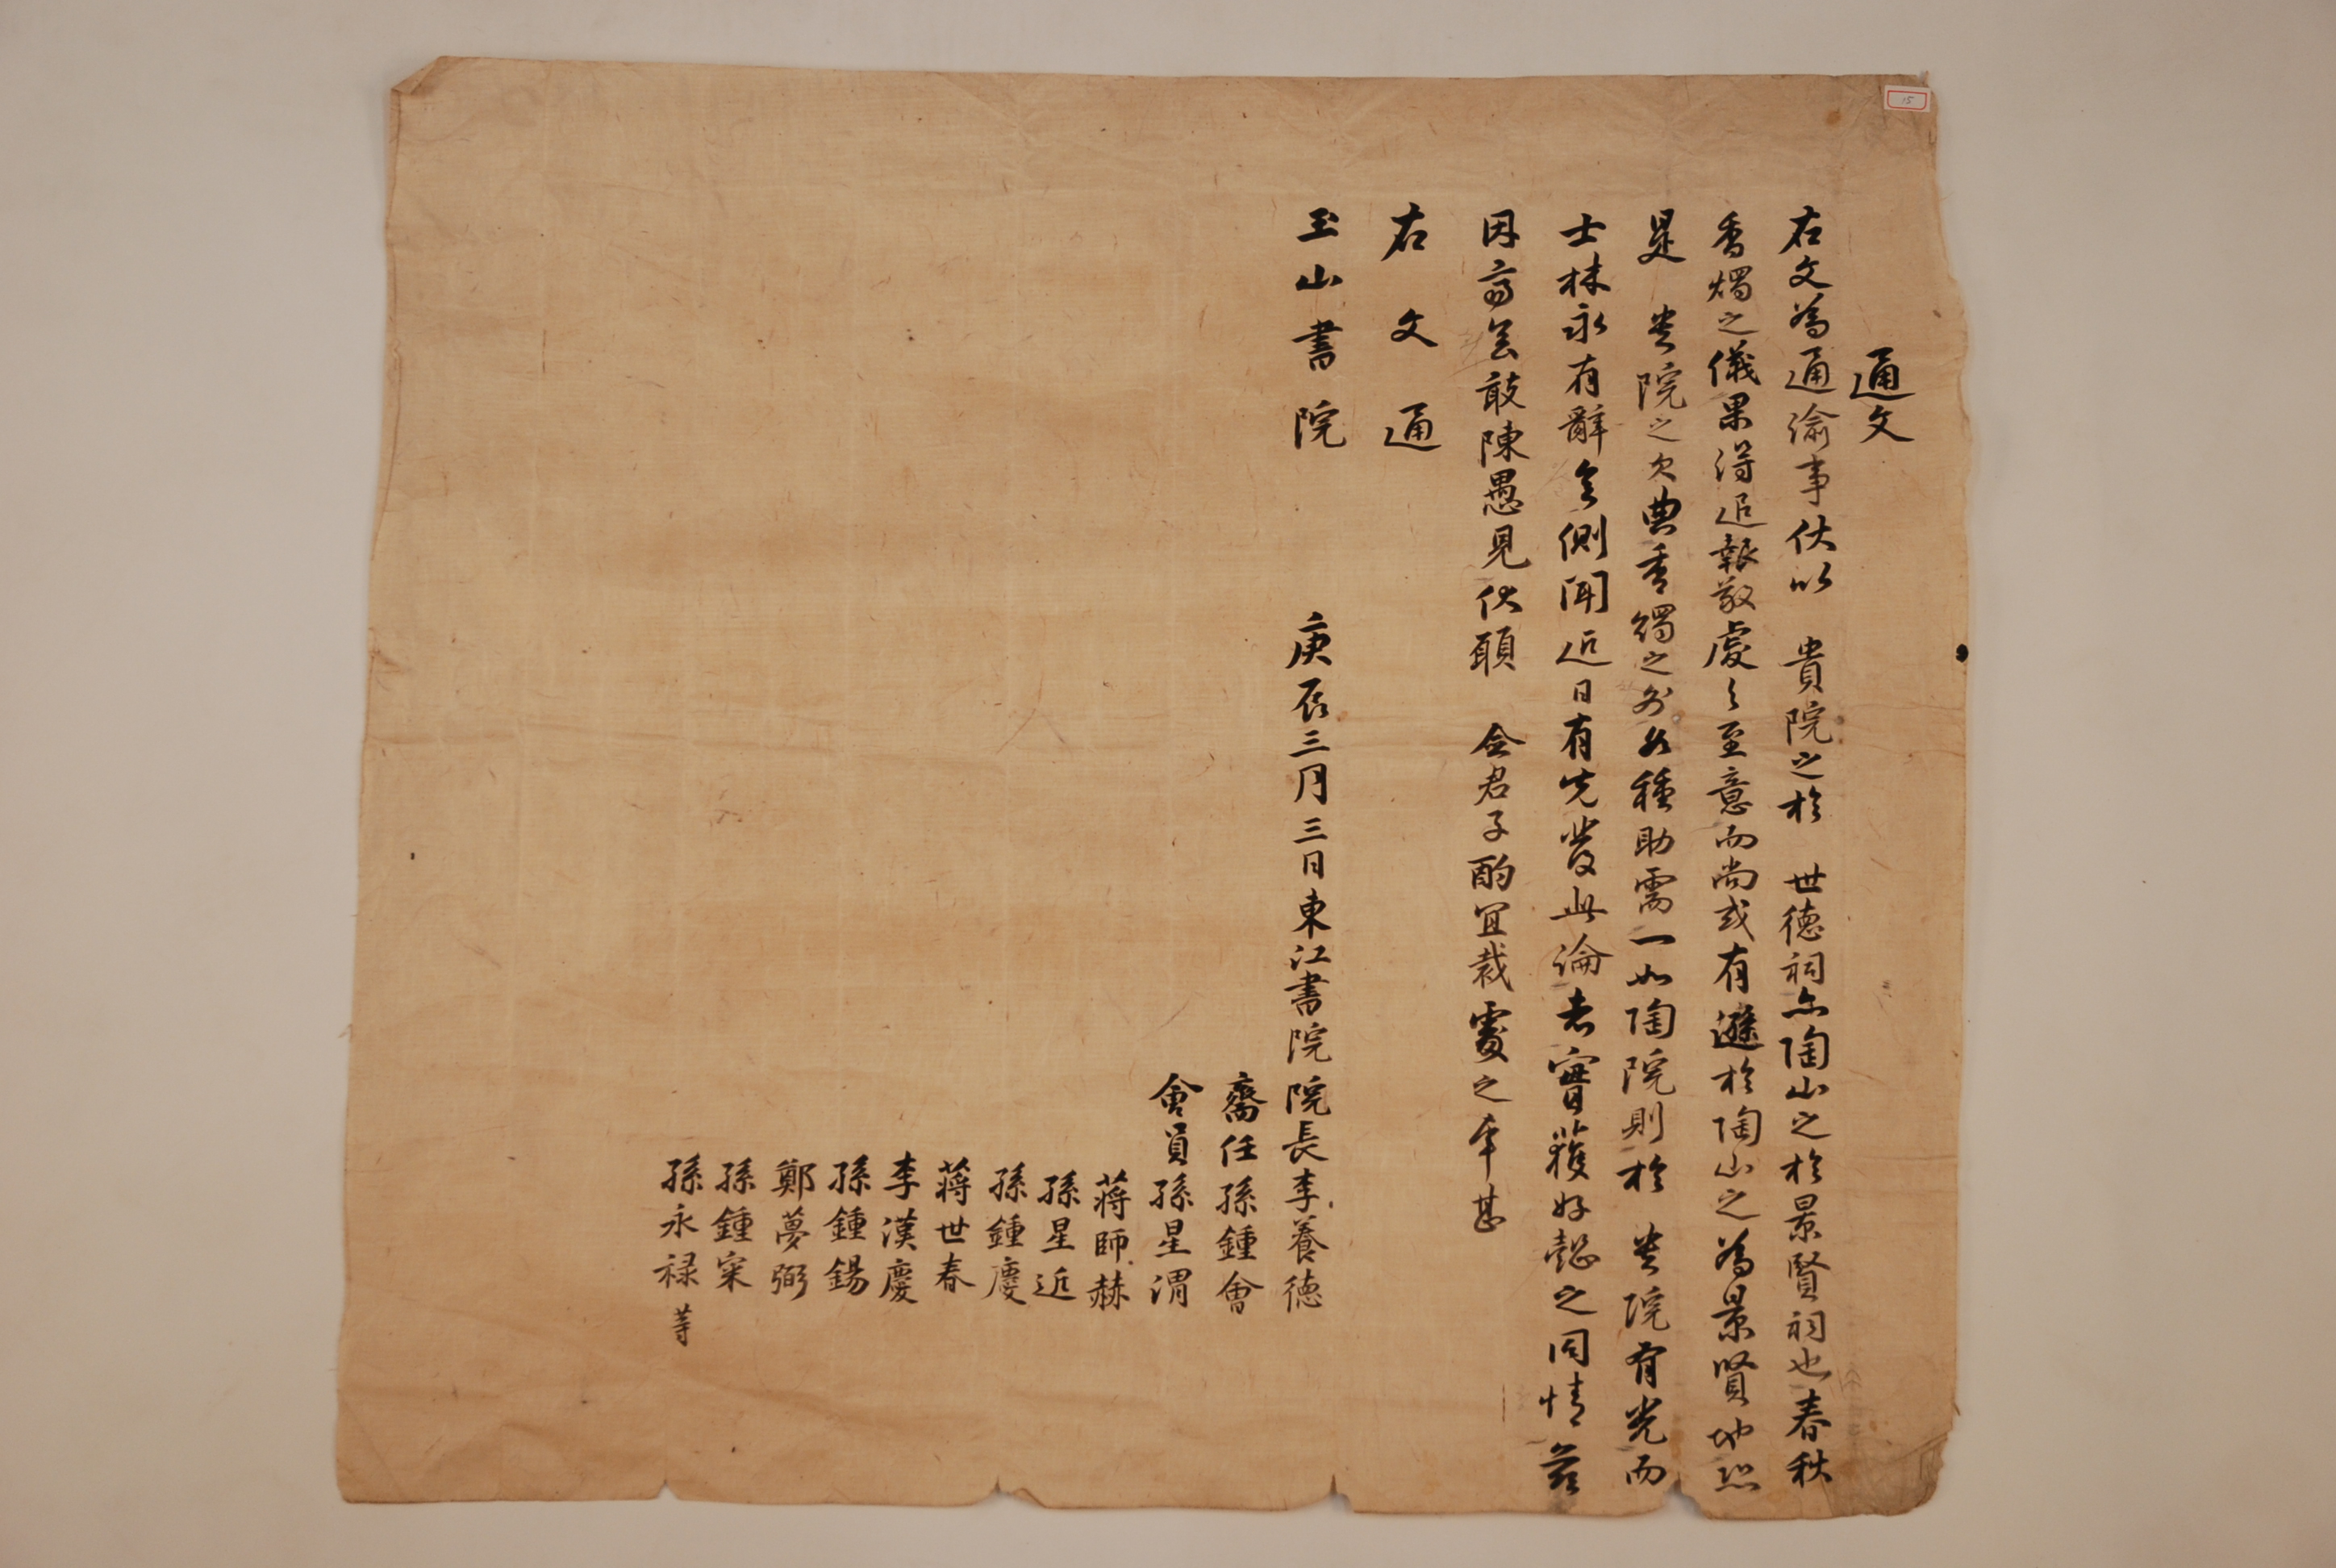 通文
右文爲通諭事伏以 貴院之於 世德祠亦陶山之於景賢祠也春秋
香燭之儀果得追報敬處之至意而尚或有遜於陶山之爲景賢地恐
是 貴院之欠典香燭之外各種助需一如陶院則於 貴院有光而
士林永有辭矣側聞近日有先發此論者實獲好懿之同情玆
因齋會敢陳愚見伏願 僉君子酌宜裁處之幸甚
右文通
玉山書院
庚辰三月三日東江書院 院長李養德
齋任孫鍾會
會員孫星渭
蔣師赫
孫星近
孫鍾慶
蔣世春
李漢慶
孫鍾錫
鄭夢弼
孫鍾寀
孫永祿 等
15